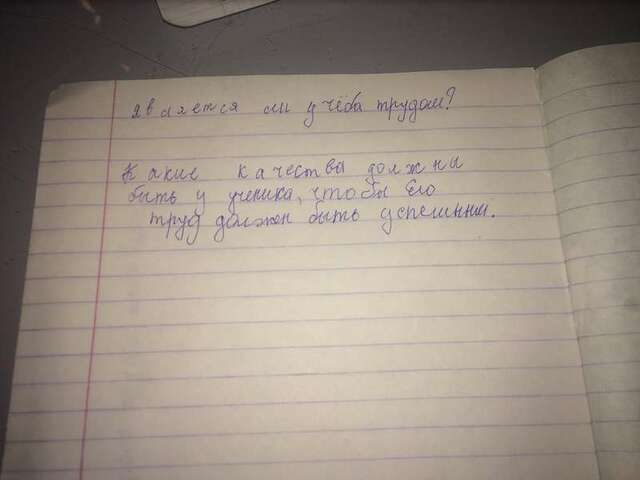 является ли учёба трудом?
Какие качества должны
быть у ученика, чтобы его
труд должен быть успешным.